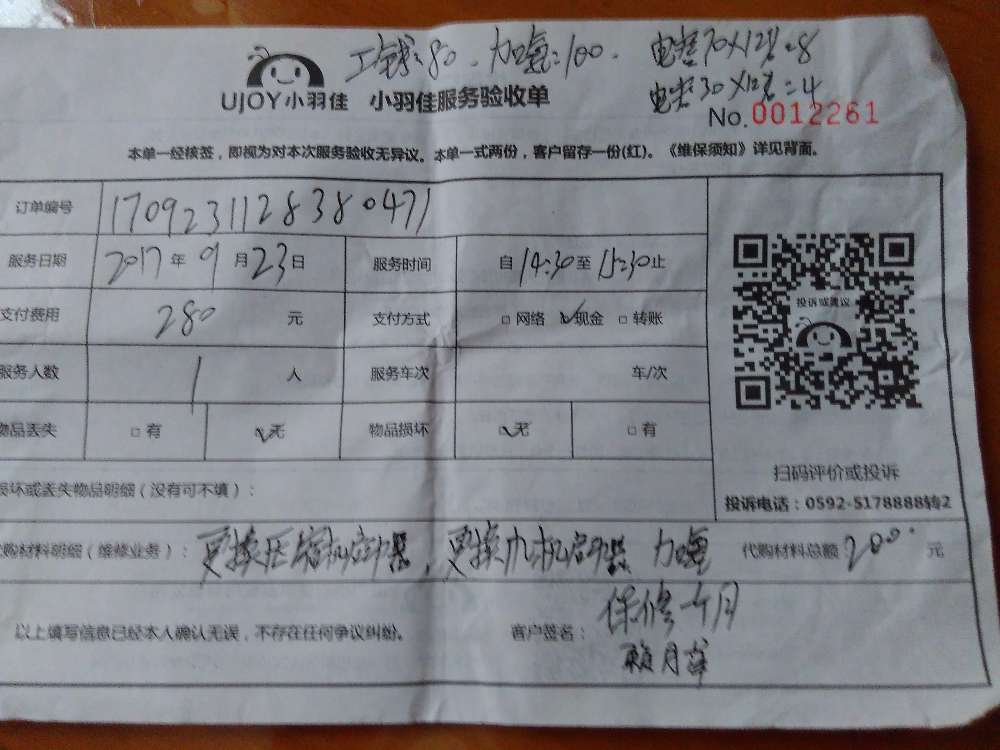 工钱:80、加氟:100. 电容70X12钱=8
电容30X12钱=4
UJOY小羽佳 小羽佳服务验收单
No.0012261
本单一经核签，即视为对本次服务验收无异议。本单一式两份，客户留存一份(红)。《维保须知》详见背面。
订单编号 170923112838 0471
服务日期 2017年9月23日 服务时间 自14:30至15:30止
支付费用 280 元 支付方式 □网络 ☑现金 □转账
投诉或建议
服务人数 1 人 服务车次 车/次
物品丢失 □有 ☑无 物品损坏 ☑无 □有
扫码评价或投诉
损坏或丢失物品明细（没有可不填）：
投诉电话：0592-5178888转2
代购材料明细（维修业务）：更换压缩机启动器、更换 机启动器 加氟 代购材料总额 200 元
保修一个月
以上填写信息已经本人确认无误，不存在任何争议纠纷。 客户签名：
赖月